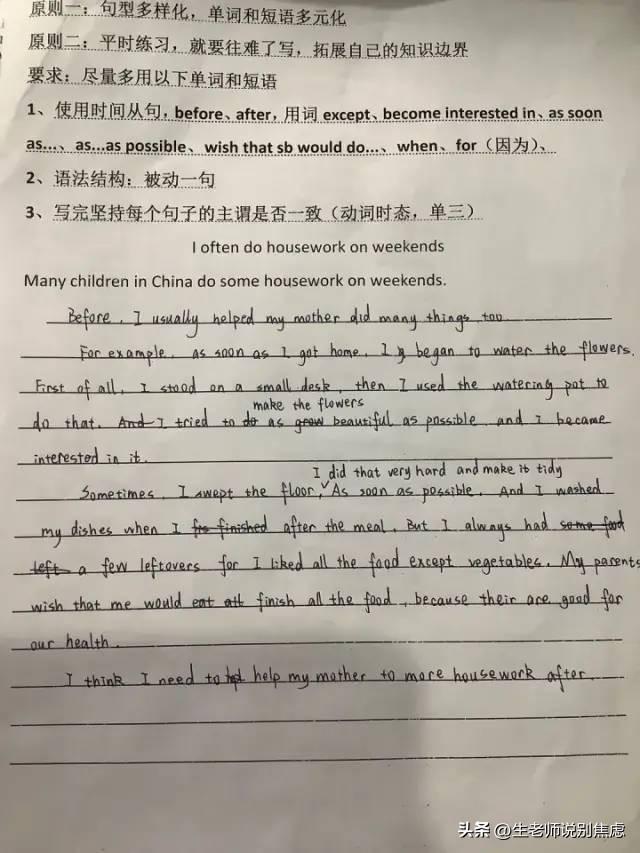 原则一：句型多样化，单词和短语多元化
原则二：平时练习，就要往难了写，拓展自己的知识边界
要求：尽量多用以下单词和短语
1、使用时间从句, before、after, 用词 except、become interested in、as soon
as...、as...as possible、wish that sb would do...、when、for（因为）、
2、语法结构：被动一句
3、写完坚持每个句子的主谓是否一致（动词时态，单三）
I often do housework on weekends
Many children in China do some housework on weekends.
Before, I usually helped my mother did many things too.
For example, as soon as I got home, I began to water the flowers.
First of all, I stood on a small desk, then I used the watering pot to
make the flowers
do that. And I tried to do as grow beautiful as possible and I became
interested in it.
I did that very hard and make it tidy
Sometimes, I swept the floor, As soon as possible. And I washed
my dishes when I finished after the meal. But I always had some food
left a few leftovers for I liked all the food except vegetables. My parents
wish that me would eat all finish all the food, because their are good for
our health.
I think I need to help my mother to more housework after.
头条 @生老师说别焦虑